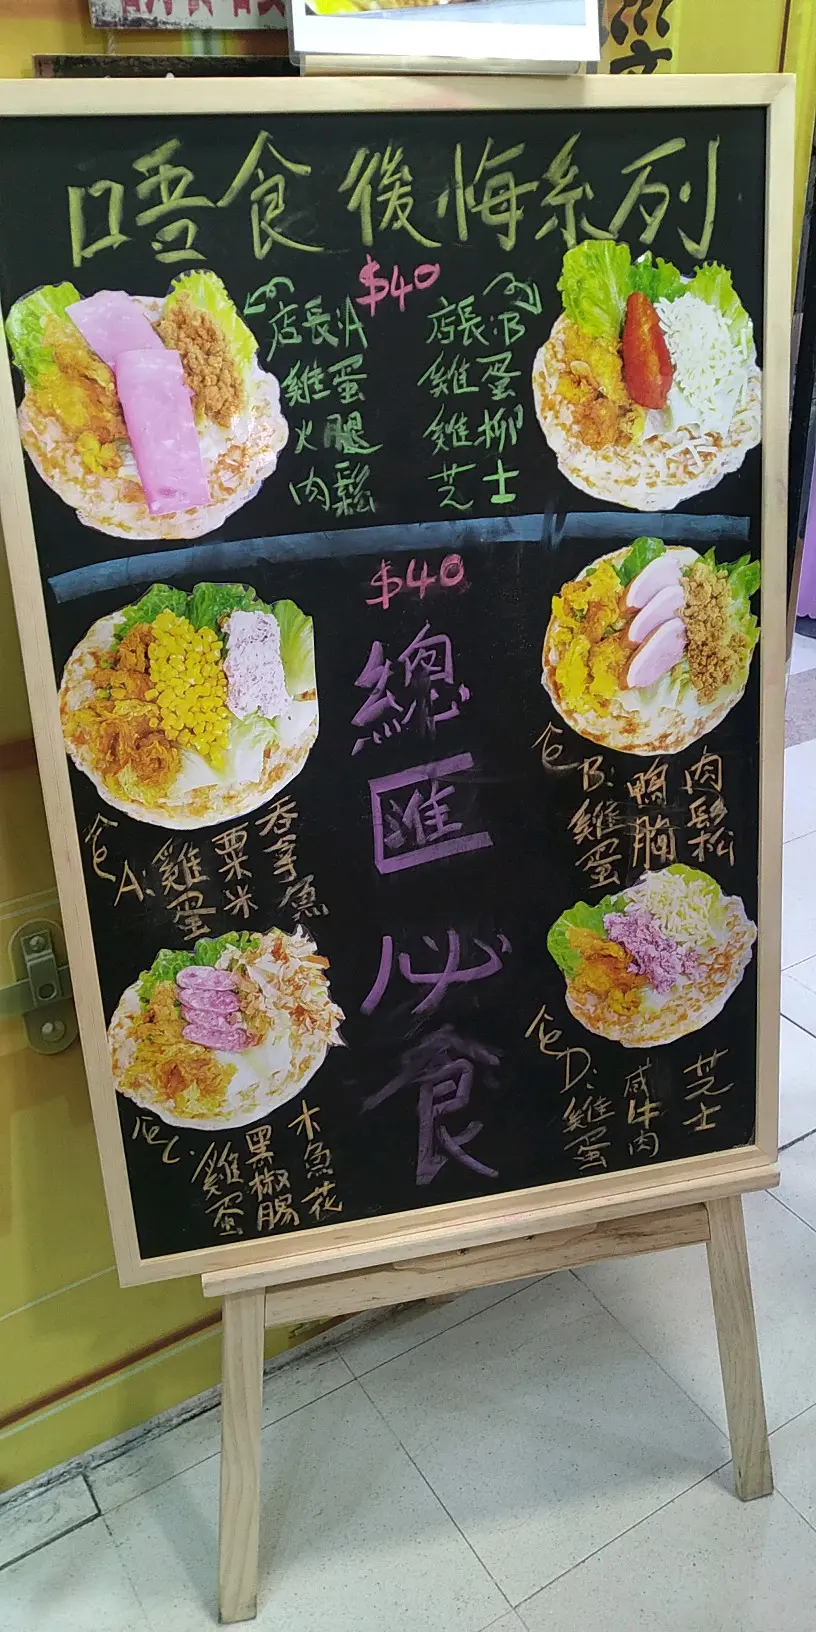 唔食後悔系列
$40
店長:A
雞蛋
火腿
肉鬆
店長:B
雞蛋
雞柳
芝士
$40
總匯必食
A:雞蛋
粟米
吞拿魚
B:雞蛋
鴨胸
肉鬆
C:雞蛋
黑椒腸
木魚花
D:雞蛋
咸牛肉
芝士